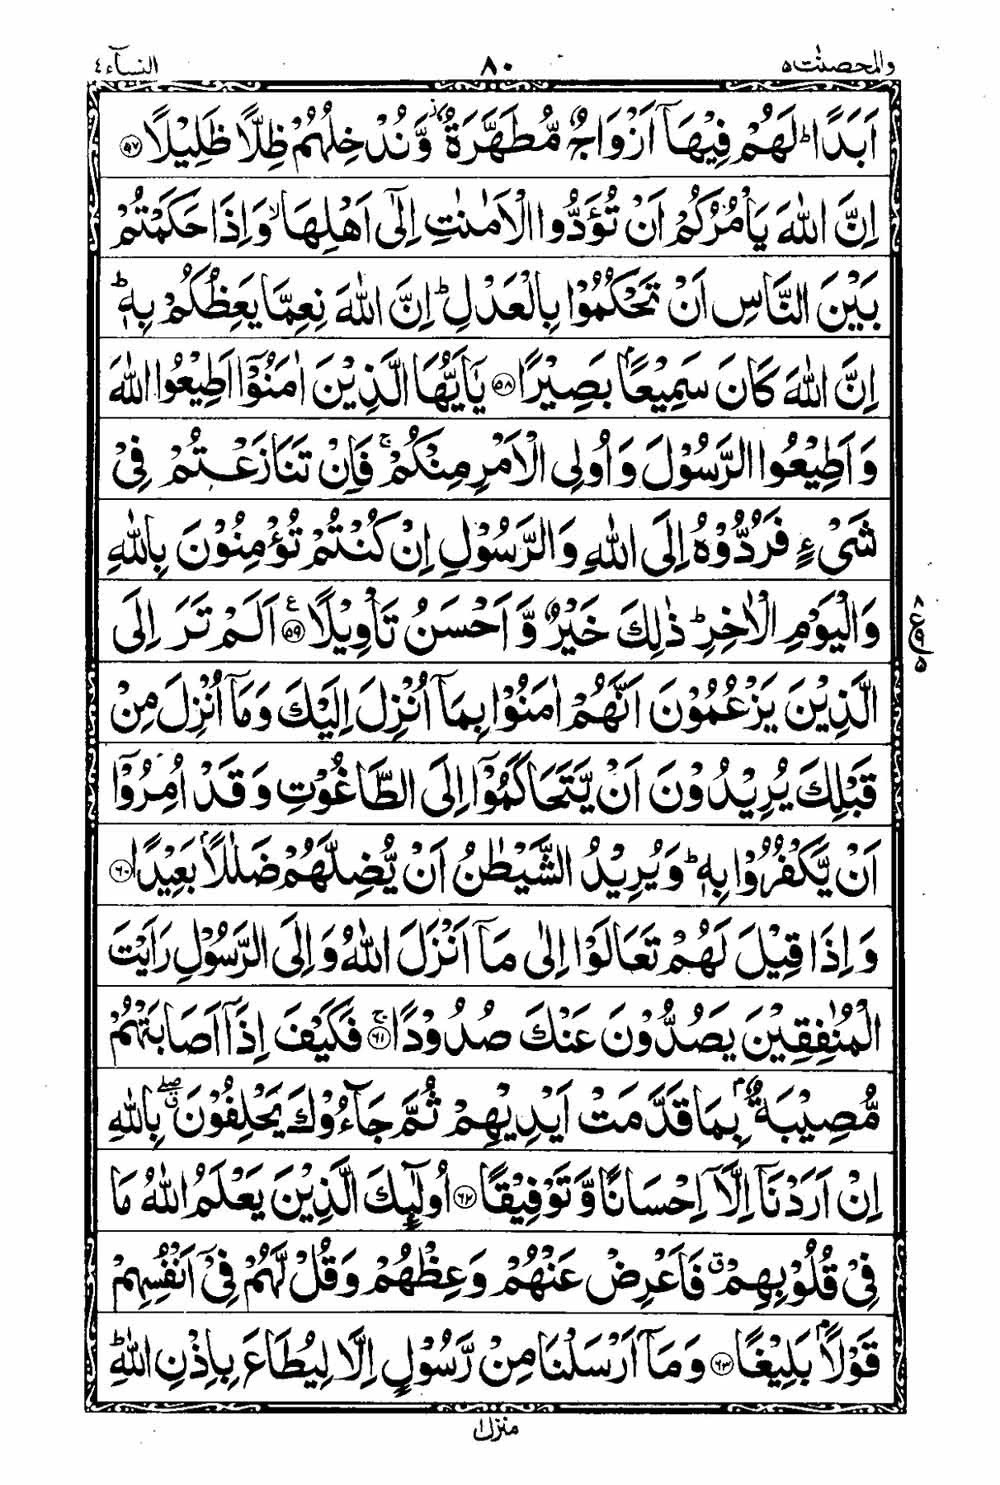 والمحصنٰت ۵ ۸۰ النسآء ٤
اَبَدًا ؕ لَهُمْ فِيْهَاۤ اَزْوَاجٌ مُّطَهَّرَةٌ ؗ وَّنُدْخِلُهُمْ ظِلًّا ظَلِيْلًا ۝۵۷
اِنَّ اللّٰهَ يَاْمُرُكُمْ اَنْ تُؤَدُّوا الْاَمٰنٰتِ اِلٰۤى اَهْلِهَا ۙ وَاِذَا حَكَمْتُمْ
بَيْنَ النَّاسِ اَنْ تَحْكُمُوْا بِالْعَدْلِ ؕ اِنَّ اللّٰهَ نِعِمَّا يَعِظُكُمْ بِهٖ ؕ
اِنَّ اللّٰهَ كَانَ سَمِيْعًۢا بَصِيْرًا ۝۵۸ يٰۤاَيُّهَا الَّذِيْنَ اٰمَنُوْۤا اَطِيْعُوا اللّٰهَ
وَاَطِيْعُوا الرَّسُوْلَ وَاُولِى الْاَمْرِ مِنْكُمْ ۚ فَاِنْ تَنَازَعْتُمْ فِيْ
شَيْءٍ فَرُدُّوْهُ اِلَى اللّٰهِ وَالرَّسُوْلِ اِنْ كُنْتُمْ تُؤْمِنُوْنَ بِاللّٰهِ
وَالْيَوْمِ الْاٰخِرِ ؕ ذٰلِكَ خَيْرٌ وَّاَحْسَنُ تَاْوِيْلًا ۝۵۹ ع اَلَمْ تَرَ اِلَى
۸ ع ۹ ۵
الَّذِيْنَ يَزْعُمُوْنَ اَنَّهُمْ اٰمَنُوْا بِمَاۤ اُنْزِلَ اِلَيْكَ وَمَاۤ اُنْزِلَ مِنْ
قَبْلِكَ يُرِيْدُوْنَ اَنْ يَّتَحَاكَمُوْۤا اِلَى الطَّاغُوْتِ وَقَدْ اُمِرُوْۤا
اَنْ يَّكْفُرُوْا بِهٖ ؕ وَيُرِيْدُ الشَّيْطٰنُ اَنْ يُّضِلَّهُمْ ضَلٰلًۢا بَعِيْدًا ۝۶۰
وَاِذَا قِيْلَ لَهُمْ تَعَالَوْا اِلٰى مَاۤ اَنْزَلَ اللّٰهُ وَاِلَى الرَّسُوْلِ رَاَيْتَ
الْمُنٰفِقِيْنَ يَصُدُّوْنَ عَنْكَ صُدُوْدًا ۝۶۱ ۚ فَكَيْفَ اِذَاۤ اَصَابَتْهُمْ
مُّصِيْبَةٌۢ بِمَا قَدَّمَتْ اَيْدِيْهِمْ ثُمَّ جَآءُوْكَ يَحْلِفُوْنَ ۖۗ بِاللّٰهِ
اِنْ اَرَدْنَاۤ اِلَّاۤ اِحْسَانًا وَّتَوْفِيْقًا ۝۶۲ اُولٰٓئِكَ الَّذِيْنَ يَعْلَمُ اللّٰهُ مَا
فِيْ قُلُوْبِهِمْ ۗ فَاَعْرِضْ عَنْهُمْ وَعِظْهُمْ وَقُلْ لَّهُمْ فِيْۤ اَنْفُسِهِمْ
قَوْلًۢا بَلِيْغًا ۝۶۳ وَمَاۤ اَرْسَلْنَا مِنْ رَّسُوْلٍ اِلَّا لِيُطَاعَ بِاِذْنِ اللّٰهِ ؕ
منزل ۱